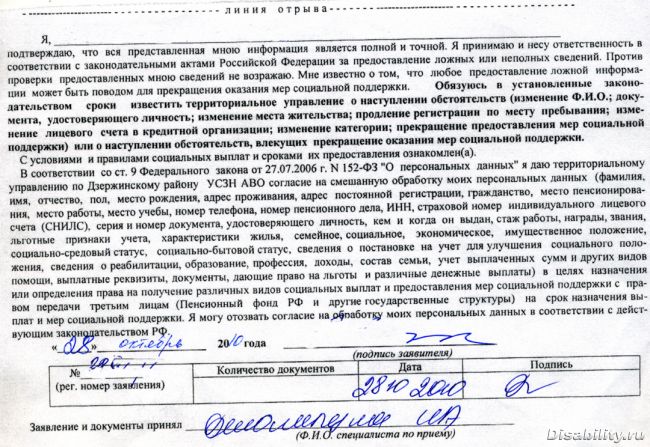 линия отрыва
Я,
подтверждаю, что вся представленная мною информация является полной и точной. Я принимаю и несу ответственность в
соответствии с законодательными актами Российской Федерации за предоставление ложных или неполных сведений. Против
проверки предоставленных мною сведений не возражаю. Мне известно о том, что любое предоставление ложной информа-
ции может быть поводом для прекращения оказания мер социальной поддержки. Обязуюсь в установленные законо-
дательством сроки известить территориальное управление о наступлении обстоятельств (изменение Ф.И.О.; доку-
мента, удостоверяющего личность; изменение места жительства; продление регистрации по месту пребывания; изме-
нение лицевого счета в кредитной организации; изменение категории; прекращение предоставления мер социальной
поддержки) или о наступлении обстоятельств, влекущих прекращение оказания мер социальной поддержки.
С условиями и правилами социальных выплат и сроками их предоставления ознакомлен(а).
В соответствии со ст. 9 Федерального закона от 27.07.2006 г. N 152-ФЗ "О персональных данных" я даю территориальному
управлению по Дзержинскому району УСЗН АВО согласие на смешанную обработку моих персональных данных (фамилия,
имя, отчество, пол, место рождения, адрес проживания, адрес постоянной регистрации, гражданство, место пенсионирова-
ния, место работы, место учебы, номер телефона, номер пенсионного дела, ИНН, страховой номер индивидуального лицевого
счета (СНИЛС), серия и номер документа, удостоверяющего личность, кем и когда он выдан, стаж работы, награды, звания,
льготные признаки учета, характеристики жилья, семейное, социальное, экономическое, имущественное положение,
социально-средовый статус, социально-бытовой статус, сведения о постановке на учет для улучшения социального поло-
жения, сведения о реабилитации, образование, профессия, доходы, состав семьи, учет выплаченных сумм и других видов
помощи, выплатные реквизиты, документы, дающие право на льготы и различные денежные выплаты) в целях назначения
или определения права на получение различных видов социальных выплат и предоставления мер социальной поддержки с пра-
вом передачи третьим лицам (Пенсионный фонд РФ и другие государственные структуры) на срок назначения вы-
плат и мер социальной поддержки. Я могу отозвать согласие на обработку моих персональных данных в соответствии с дейст-
вующим законодательством РФ.
«28» октябрь 2010 года
(подпись заявителя)
№ Количество документов Дата Подпись
(рег. номер заявления) 28 10 2010
Заявление и документы принял
(Ф.И.О. специалиста по приему)
Disability.ru